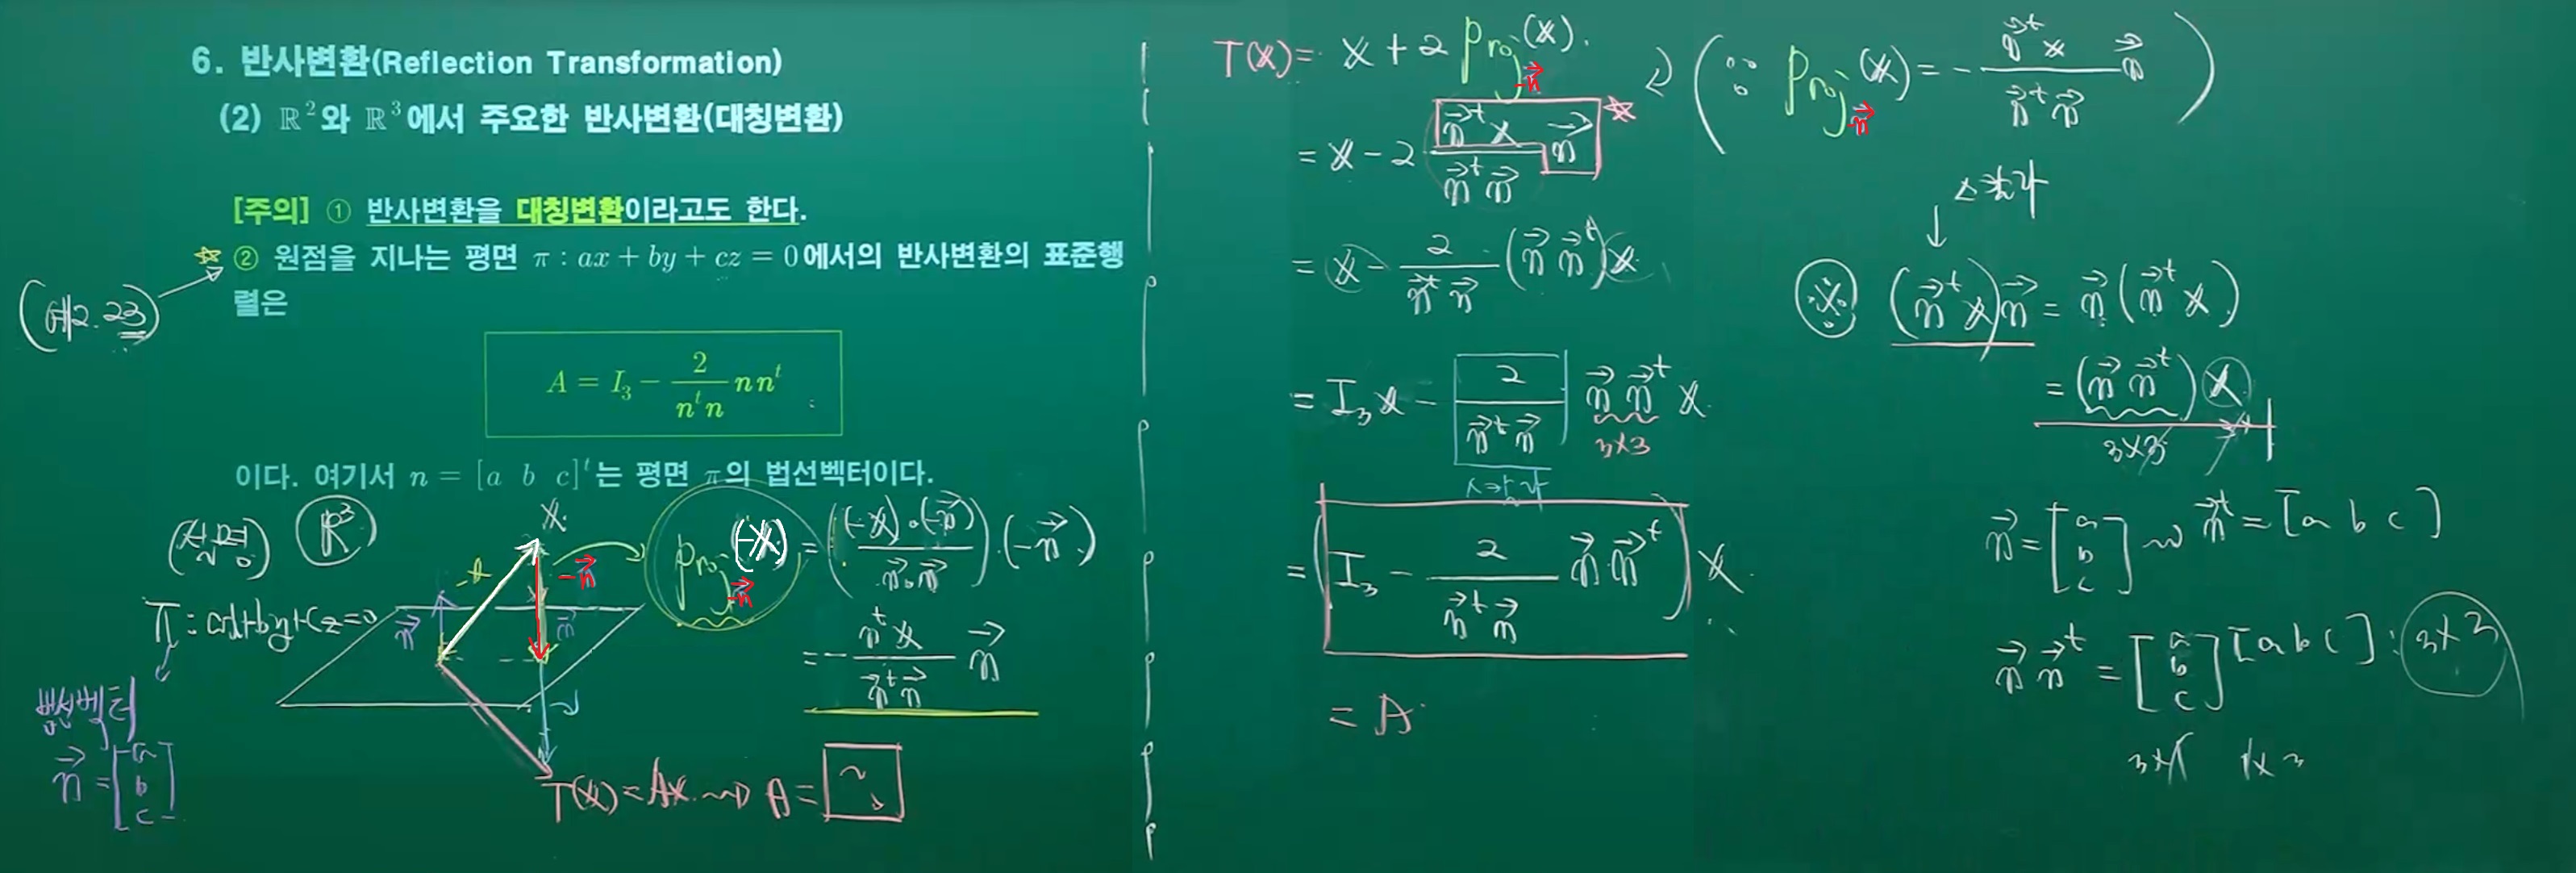 6. 반사변환(Reflection Transformation)
(2) ℝ²와 ℝ³에서 주요한 반사변환(대칭변환)
[주의] ① 반사변환을 대칭변환이라고도 한다.
② 원점을 지나는 평면 π : ax + by + cz = 0에서의 반사변환의 표준행
렬은
A = I₃ − 2/(nᵗn) nnᵗ
이다. 여기서 n = [a b c]ᵗ는 평면 π의 법선벡터이다.
ℝ³
π : ax+by+cz=0
법선벡터
n⃗ = [a b c]
x
-n⃗
n⃗
n⃗
Proj_{-n⃗}(-x) = ((-x)·(-n⃗) / n⃗·n⃗)·(-n⃗)
= - (nᵗx / n⃗ᵗn⃗) n⃗
T(x) = Ax ⇝ A =
T(x) = x + 2 Proj_{-n⃗}(x).
= x - 2 (n⃗ᵗx / n⃗ᵗn⃗) n⃗
= x - 2/(n⃗ᵗn⃗) (n⃗ n⃗ᵗ) x
= I₃x - 2/(n⃗ᵗn⃗) n⃗ n⃗ᵗ x
3×3
= (I₃ - 2/(n⃗ᵗn⃗) n⃗ n⃗ᵗ) x
= A
(∵ Proj_{-n⃗}(x) = - (n⃗ᵗx / n⃗ᵗn⃗) n⃗)
스칼라
※ (n⃗ᵗx)n⃗ = n⃗(n⃗ᵗx)
= (n⃗ n⃗ᵗ) x
3×3
n⃗ = [a b c] ⇝ n⃗ᵗ = [a b c]
n⃗ n⃗ᵗ = [a b c] [a b c] : 3×3
3×1 1×3